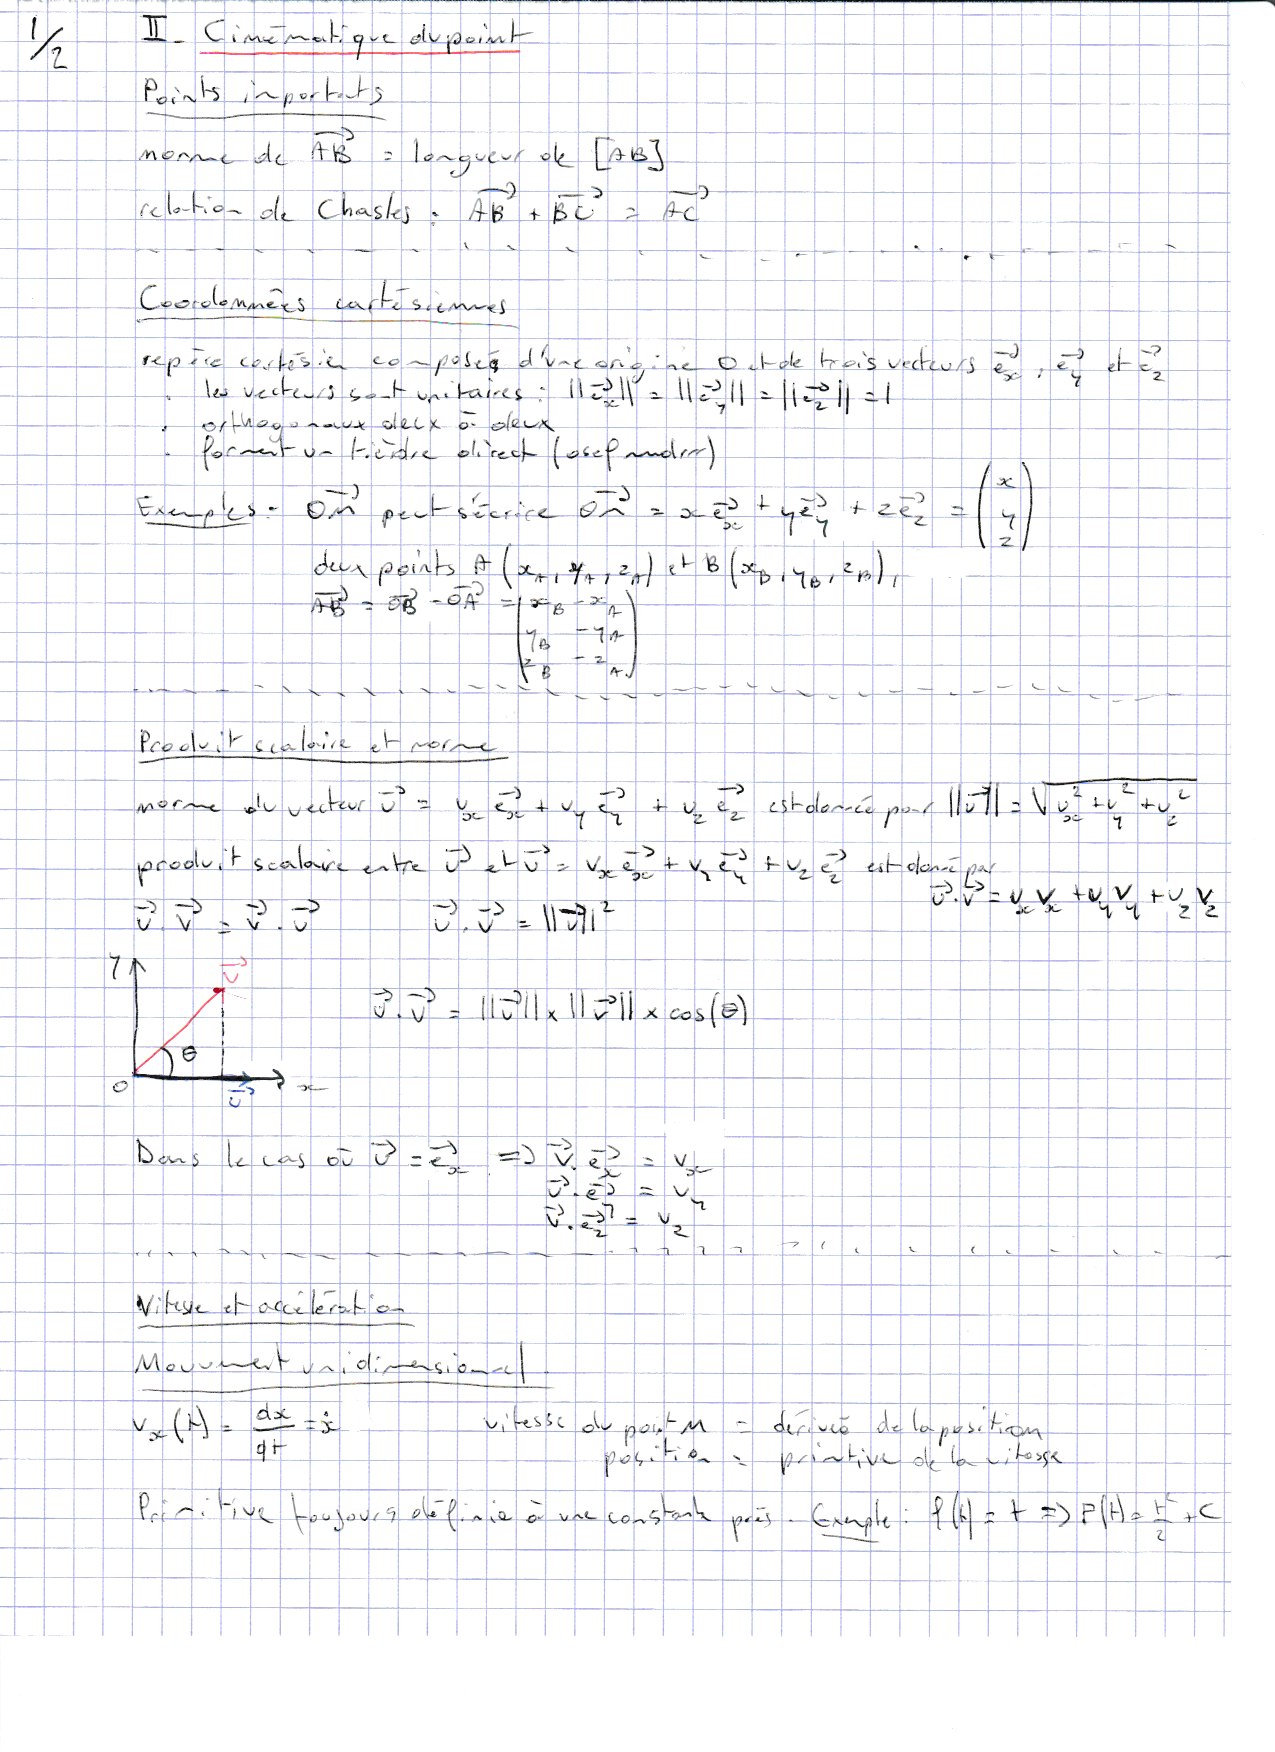 1/2
II - Cinématique du point
Points importants
norme de \overrightarrow{AB} = longueur de [AB]
relation de Chasles : \overrightarrow{AB} + \overrightarrow{BC} = \overrightarrow{AC}
Coordonnées cartésiennes
repère cartésien composés d'une origine O et de trois vecteurs \vec{e_x}, \vec{e_y} et \vec{e_z}
. les vecteurs sont unitaires : ||\vec{e_x}|| = ||\vec{e_y}|| = ||\vec{e_z}|| = 1
. orthogonaux deux à deux
. forment un trièdre direct (osef mdrrr)
Exemples : \overrightarrow{OM} peut s'écrire \overrightarrow{OM} = x\vec{e_x} + y\vec{e_y} + z\vec{e_z} = \begin{pmatrix} x \\ y \\ z \end{pmatrix}
deux points A (x_A, y_A, z_A) et B (x_B, y_B, z_B),
\overrightarrow{AB} = \overrightarrow{OB} - \overrightarrow{OA} = \begin{pmatrix} x_B - x_A \\ y_B - y_A \\ z_B - z_A \end{pmatrix}
Produit scalaire et norme
norme du vecteur \vec{u} = u_x \vec{e_x} + u_y \vec{e_y} + u_z \vec{e_z} est donnée par ||\vec{u}|| = \sqrt{u_x^2 + u_y^2 + u_z^2}
produit scalaire entre \vec{u} et \vec{v} = v_x \vec{e_x} + v_y \vec{e_y} + v_z \vec{e_z} est donné par
\vec{u}.\vec{v} = u_x v_x + u_y v_y + u_z v_z
\vec{u}.\vec{v} = \vec{v}.\vec{u} \vec{u}.\vec{v} = ||\vec{u}||^2
y
\vec{v}
\vec{u}.\vec{v} = ||\vec{u}|| x ||\vec{v}|| x cos(θ)
θ
O \vec{u} x
Dans le cas où \vec{u} = \vec{e_x} => \vec{v}.\vec{e_x} = v_x
\vec{v}.\vec{e_y} = v_y
\vec{v}.\vec{e_z} = v_z
Vitesse et accélération
Mouvement unidimensionnel
v_x(t) = \frac{dx}{dt} = \dot{x} vitesse du point M = dérivée de la position
position = primitive de la vitesse
Primitive toujours définie à une constante près. Exemple : f(t) = t => F(t) = \frac{t^2}{2} + C